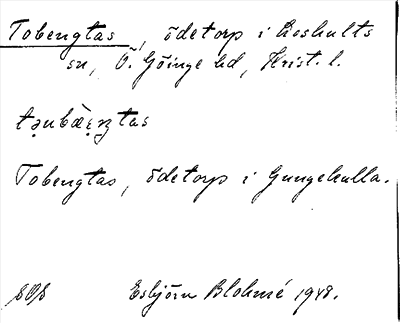 Tobengtas, ödetorp i Loshults
sn, Ö. Göinge hd, Krist. l.
tə̯ubæ̀ı̣ŋtas
Tobengtas, ödetorp i Gungekulla.
SOS Esbjörn Blohmé 1948.